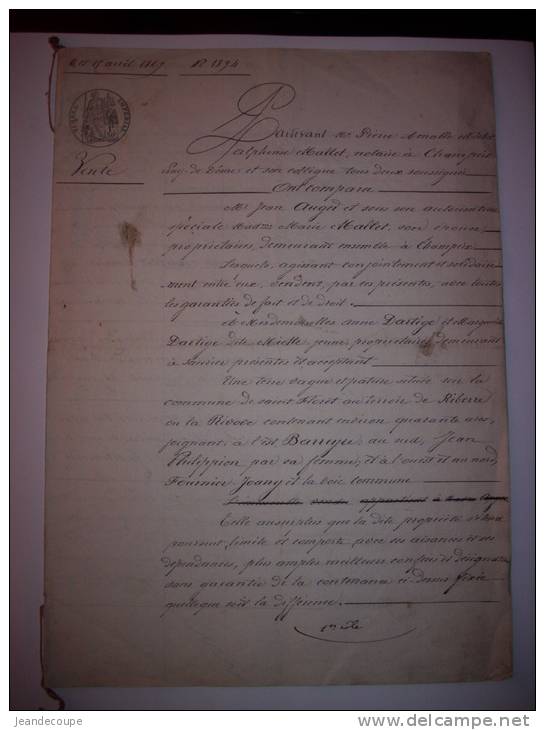 avril 1869 N. 1894
Vente
Pardevant Me Pierre
Alphonse Mallet, notaire à Champeix
Puy-de-Dôme et son collègue tous deux soussignés
Ont comparu
Mr Jean Augé et sous son autorisation
spéciale Madme Marie Mallet, son épouse
propriétaires, demeurant ensemble à Champeix
Lesquels, agissant conjointement et solidaire
ment entre eux, vendent, par ces présentes, avec toutes
les garanties de fait et de droit
à Mesdemoiselles Anne Dartige et Marguerite
Dartige dite Miette jeune propriétaires demeurant
à présentes et acceptant
Une terre vague et pature située sur la
commune de Saint Floret au terroir de Ribeire
ou la contenant environ quarante ares,
joignant à l'est Barreyre au sud, Jean
Philippion par sa femme, et à l'ouest et au nord,
Fournier Joany et la voie commune
appartient à
Telle au surplus que la dite propriété s'étend
poursuit, limite et comporte avec ses aisances et ses
dépendances, plus amples meilleurs confins et désignation
sans garantie de la contenance ci-dessus fixée
quelque soit la différence.
jeandecoupe
www.delcampe.net